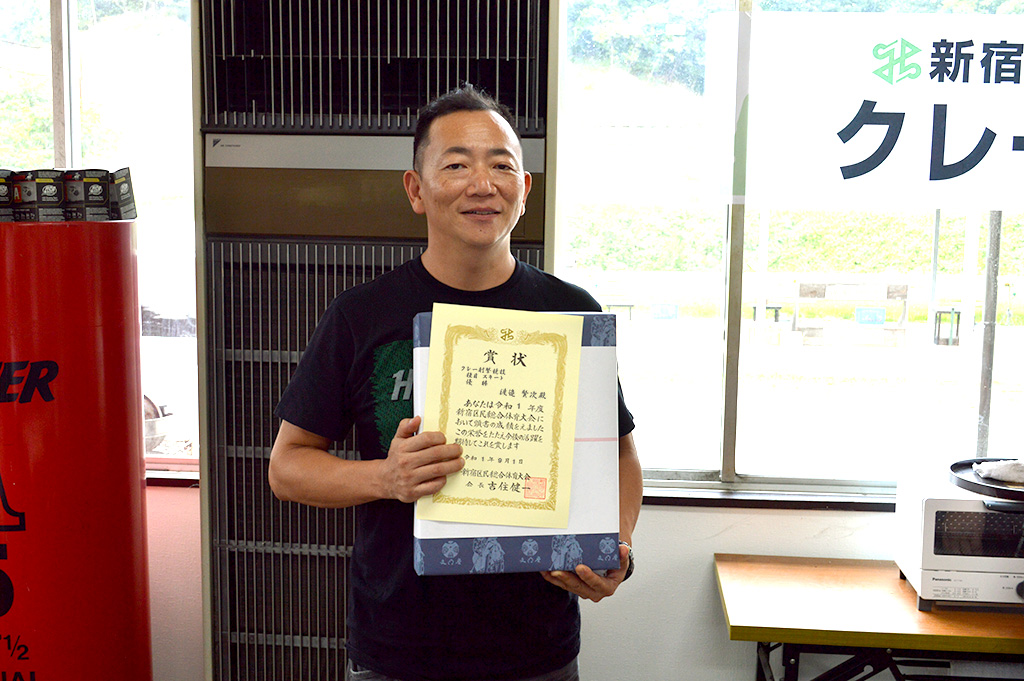 新宿
クレー
賞状
クレー射撃競技
種目 スキート
優勝
殿
あなたは令和1年度
新宿区民総合体育大会に
おいて頭書の成績をえました
この栄誉をたたえ今後の活躍を
期待してこれを賞します
令和1年9月1日
新宿区民総合体育大会
会長 吉住健一
Panasonic
1/2